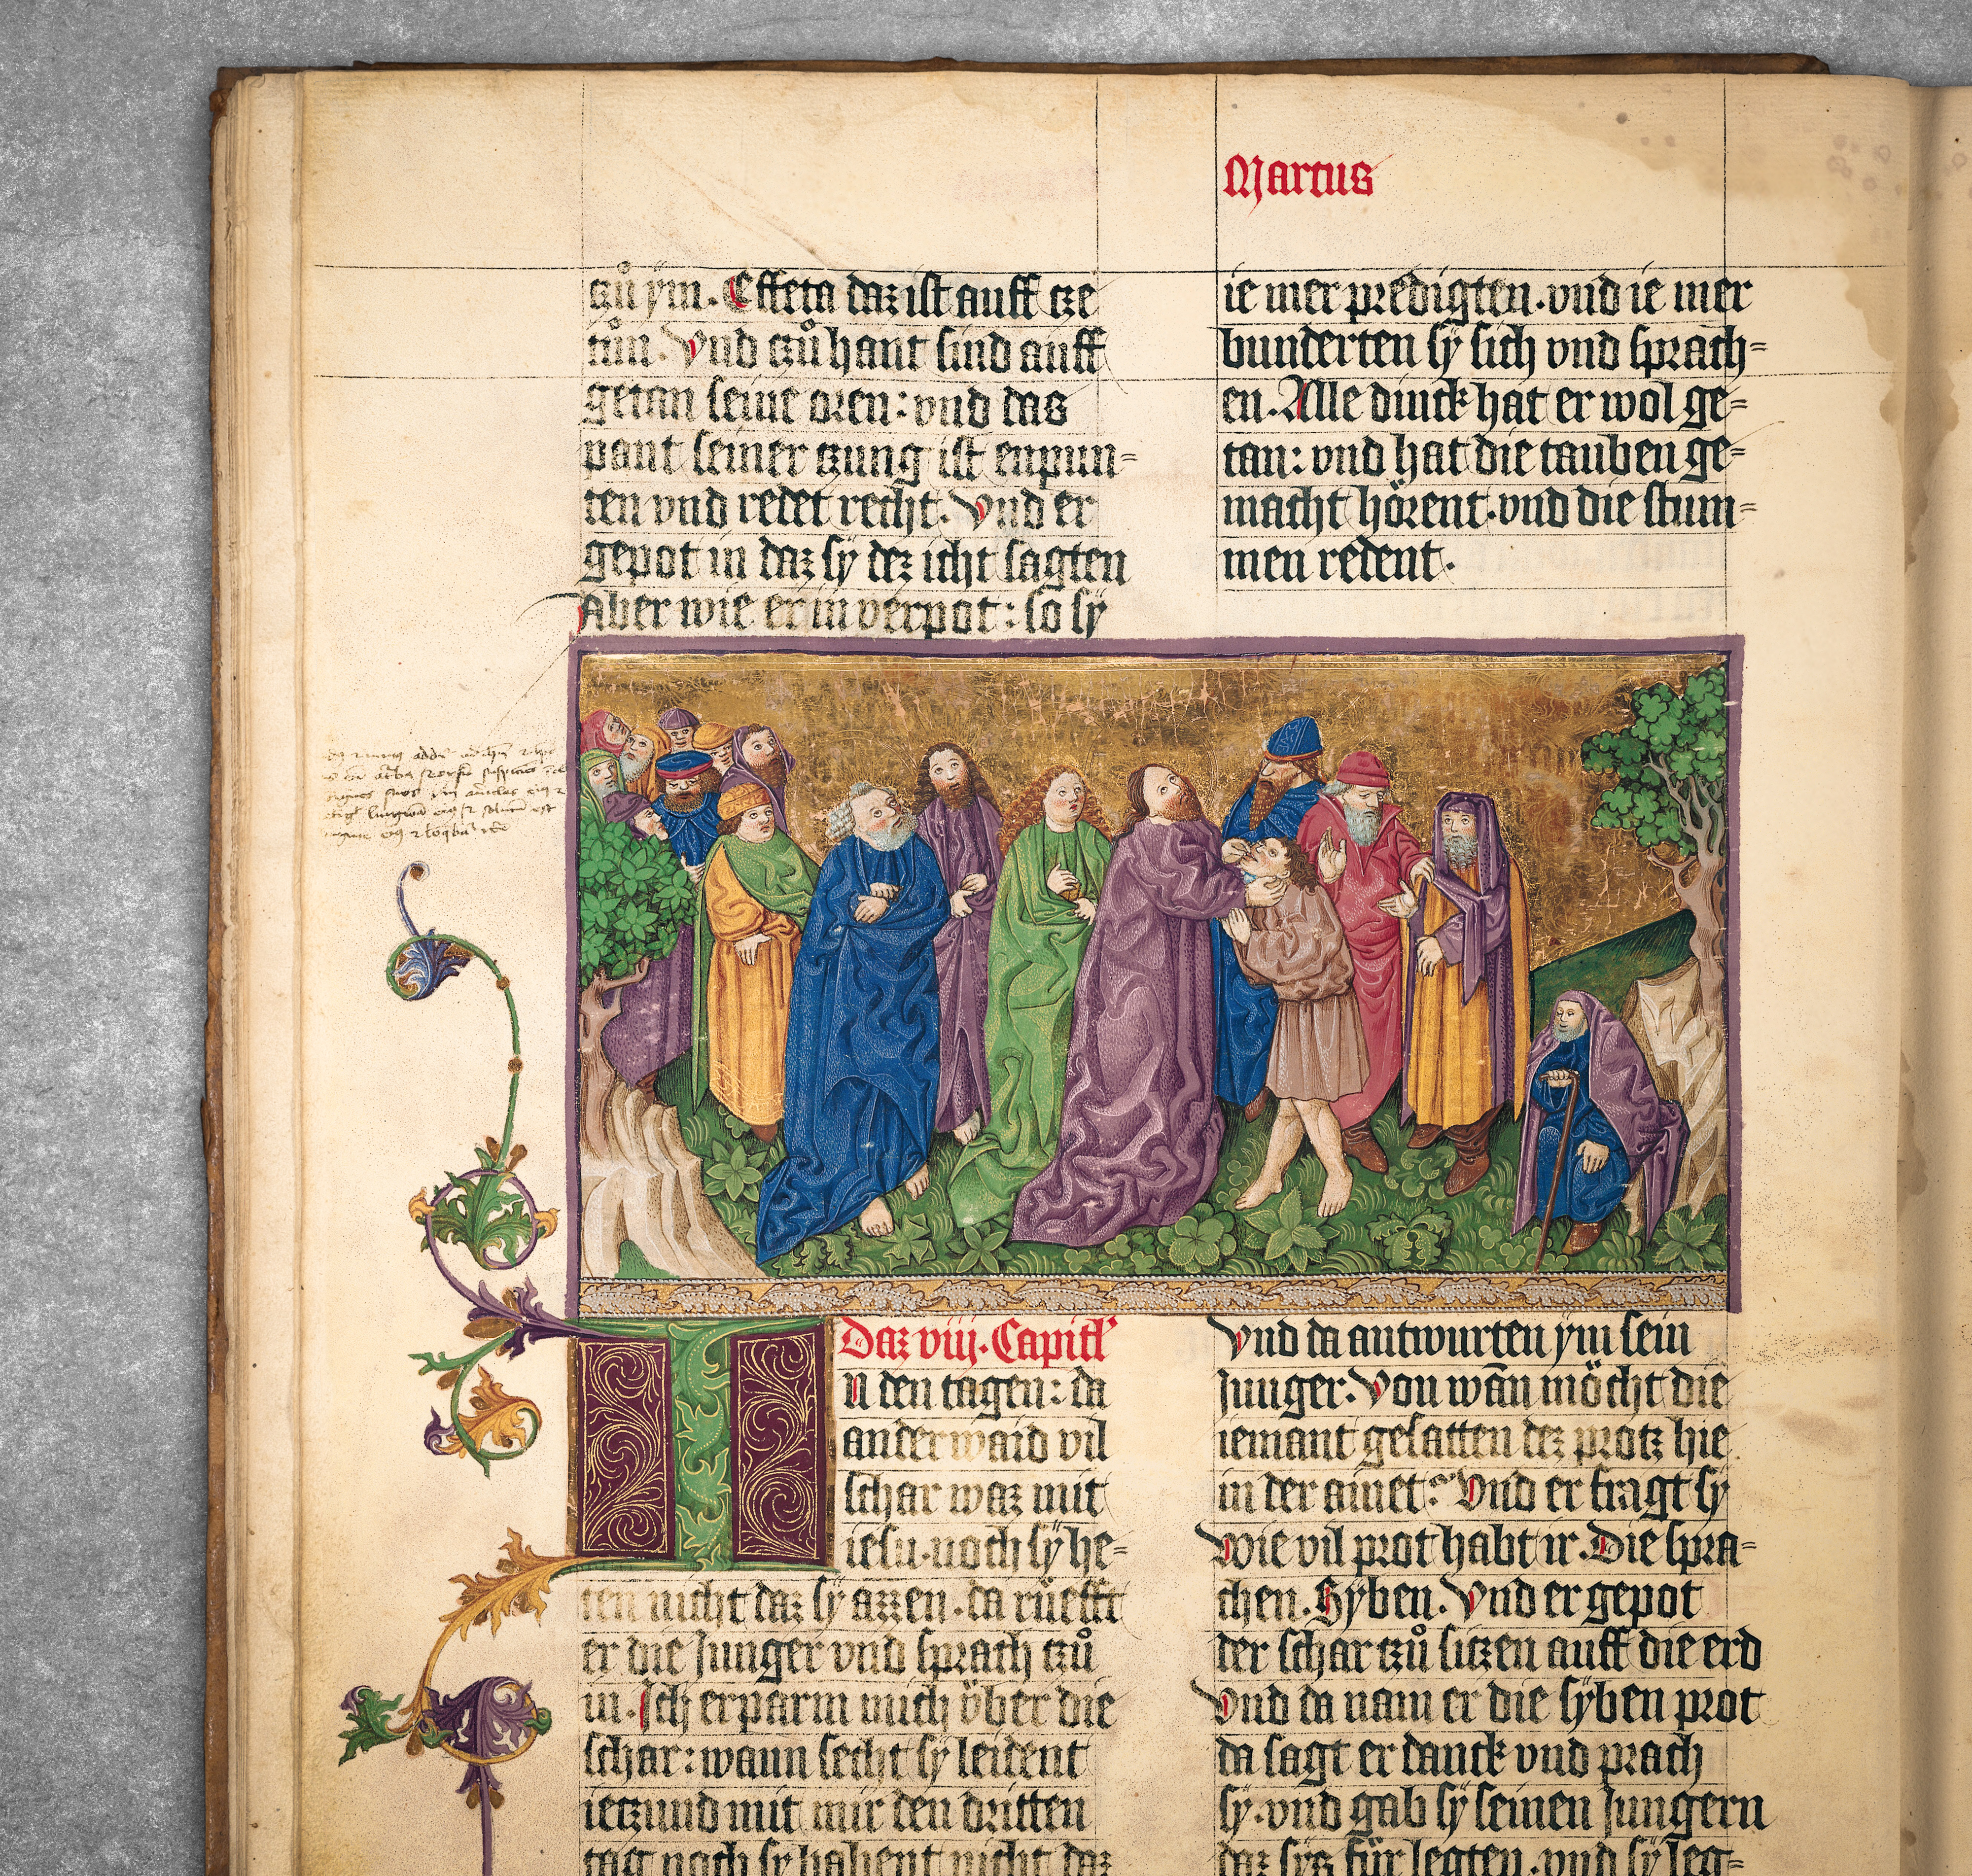 Marcus
tzů ym. Effeta daz ist auff tze
tůn. Vnd tzů hant sind auff
getan seine oren: vnd das
pant seiner tzung ist enpun=
ten vnd redet recht. Vnd er
gepot in daz sÿ dez icht sagten
Aber wie er in verpot: so sÿ
ie mer predigten. vnd ie mer
bunderten sÿ sich vnd sprach=
en. Alle dinck hat er wol ge=
tan: vnd hat die tauben ge=
macht hörent. vnd die stum=
men redent.
Daz viij. Capitl'
In den tagen: da
anderwaid vil
schar waz mit
iesu. noch sÿ he=
ten nicht daz sÿ azzen. da rüefft
er die Junger vnd sprach tzů
in. Ich erparm mich über die
schar: wann secht sÿ leident
ietzund mit mir den dritten
tag noch sy habent nicht daz
Vnd da antwurten ym sein
Junger. Von wān möcht die
iemant gesatten dez protz hie
in der ainet? Vnd er fragt sy
Wie vil prot habt ir. Die spra=
chen. Syben. Vnd er gepot
der schar tzů sitzen auff die erd
Vnd da nam er die sÿben prot
da sagt er danck vnd prach
sy. vnd gab sÿ seinen Jungern
daz sÿs für legten. vnd sÿ leg=